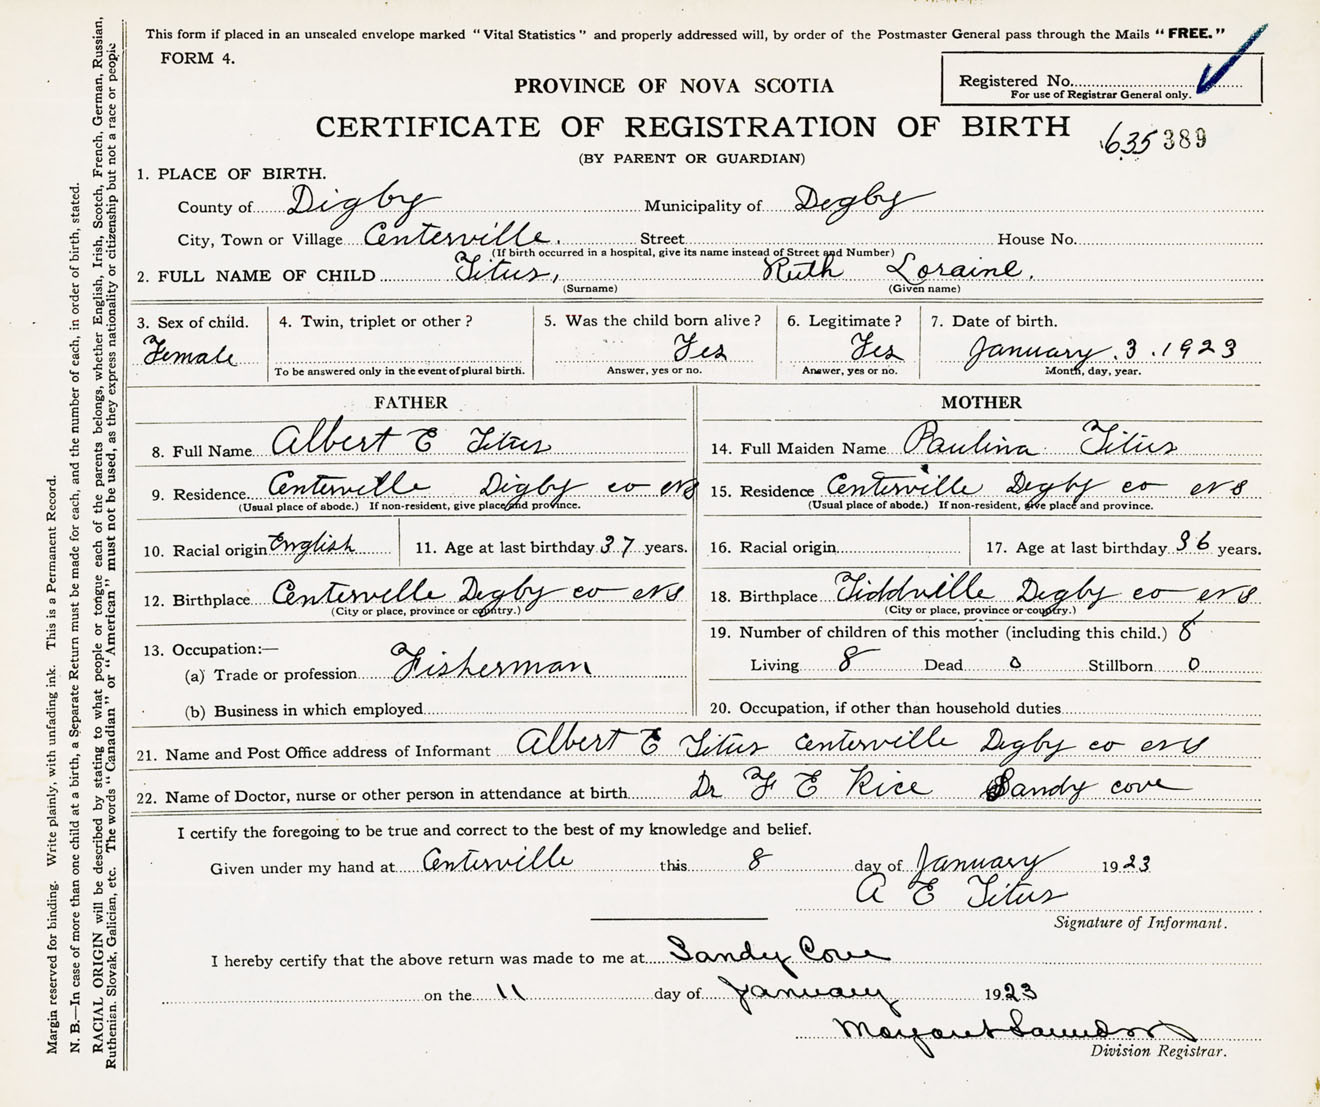 This form if placed in an unsealed envelope marked "Vital Statistics" and properly addressed will, by order of the Postmaster General pass through the Mails "FREE."
FORM 4.
Registered No.
For use of Registrar General only.
PROVINCE OF NOVA SCOTIA
CERTIFICATE OF REGISTRATION OF BIRTH
635 389
(BY PARENT OR GUARDIAN)
1. PLACE OF BIRTH.
County of Digby Municipality of Degby
City, Town or Village Centerville. Street House No.
(If birth occurred in a hospital, give its name instead of Street and Number)
2. FULL NAME OF CHILD Titus, Ruth Loraine.
(Surname) (Given name)
3. Sex of child. 4. Twin, triplet or other? 5. Was the child born alive? 6. Legitimate? 7. Date of birth.
Female Yes Yes January. 3. 1923
To be answered only in the event of plural birth. Answer, yes or no. Answer, yes or no. Month, day, year.
FATHER MOTHER
8. Full Name Albert E Titus 14. Full Maiden Name Paulina Titus
9. Residence Centerville Digby co NS 15. Residence Centerville Degby co NS
(Usual place of abode.) If non-resident, give place and province. (Usual place of abode.) If non-resident, give place and province.
10. Racial origin English 11. Age at last birthday 37 years. 16. Racial origin 17. Age at last birthday 36 years.
12. Birthplace Centerville Degby co NS 18. Birthplace Tiddville Degby co NS
(City or place, province or country.) (City or place, province or country.)
19. Number of children of this mother (including this child.) 8
13. Occupation:—
(a) Trade or profession Fisherman Living 8 Dead 0 Stillborn 0
(b) Business in which employed 20. Occupation, if other than household duties
21. Name and Post Office address of Informant Albert E Titus Centerville Degby co NS
22. Name of Doctor, nurse or other person in attendance at birth Dr F E Rice Sandy cove
I certify the foregoing to be true and correct to the best of my knowledge and belief.
Given under my hand at Centerville this 8 day of January 1923
A E Titus
Signature of Informant.
I hereby certify that the above return was made to me at Sandy Cove
on the 11 day of January 1923
Margaret Saunders
Division Registrar.
Margin reserved for binding. Write plainly, with unfading ink. This is a Permanent Record.
N. B.—In case of more than one child at a birth, a Separate Return must be made for each, and the number of each, in order of birth, stated.
RACIAL ORIGIN will be described by stating to what people or tongue each of the parents belongs, whether English, Irish, Scotch, French, German, Russian,
Ruthenian, Slovak, Galician, etc. The words "Canadian" or "American" must not be used, as they express nationality or citizenship but not a race or people